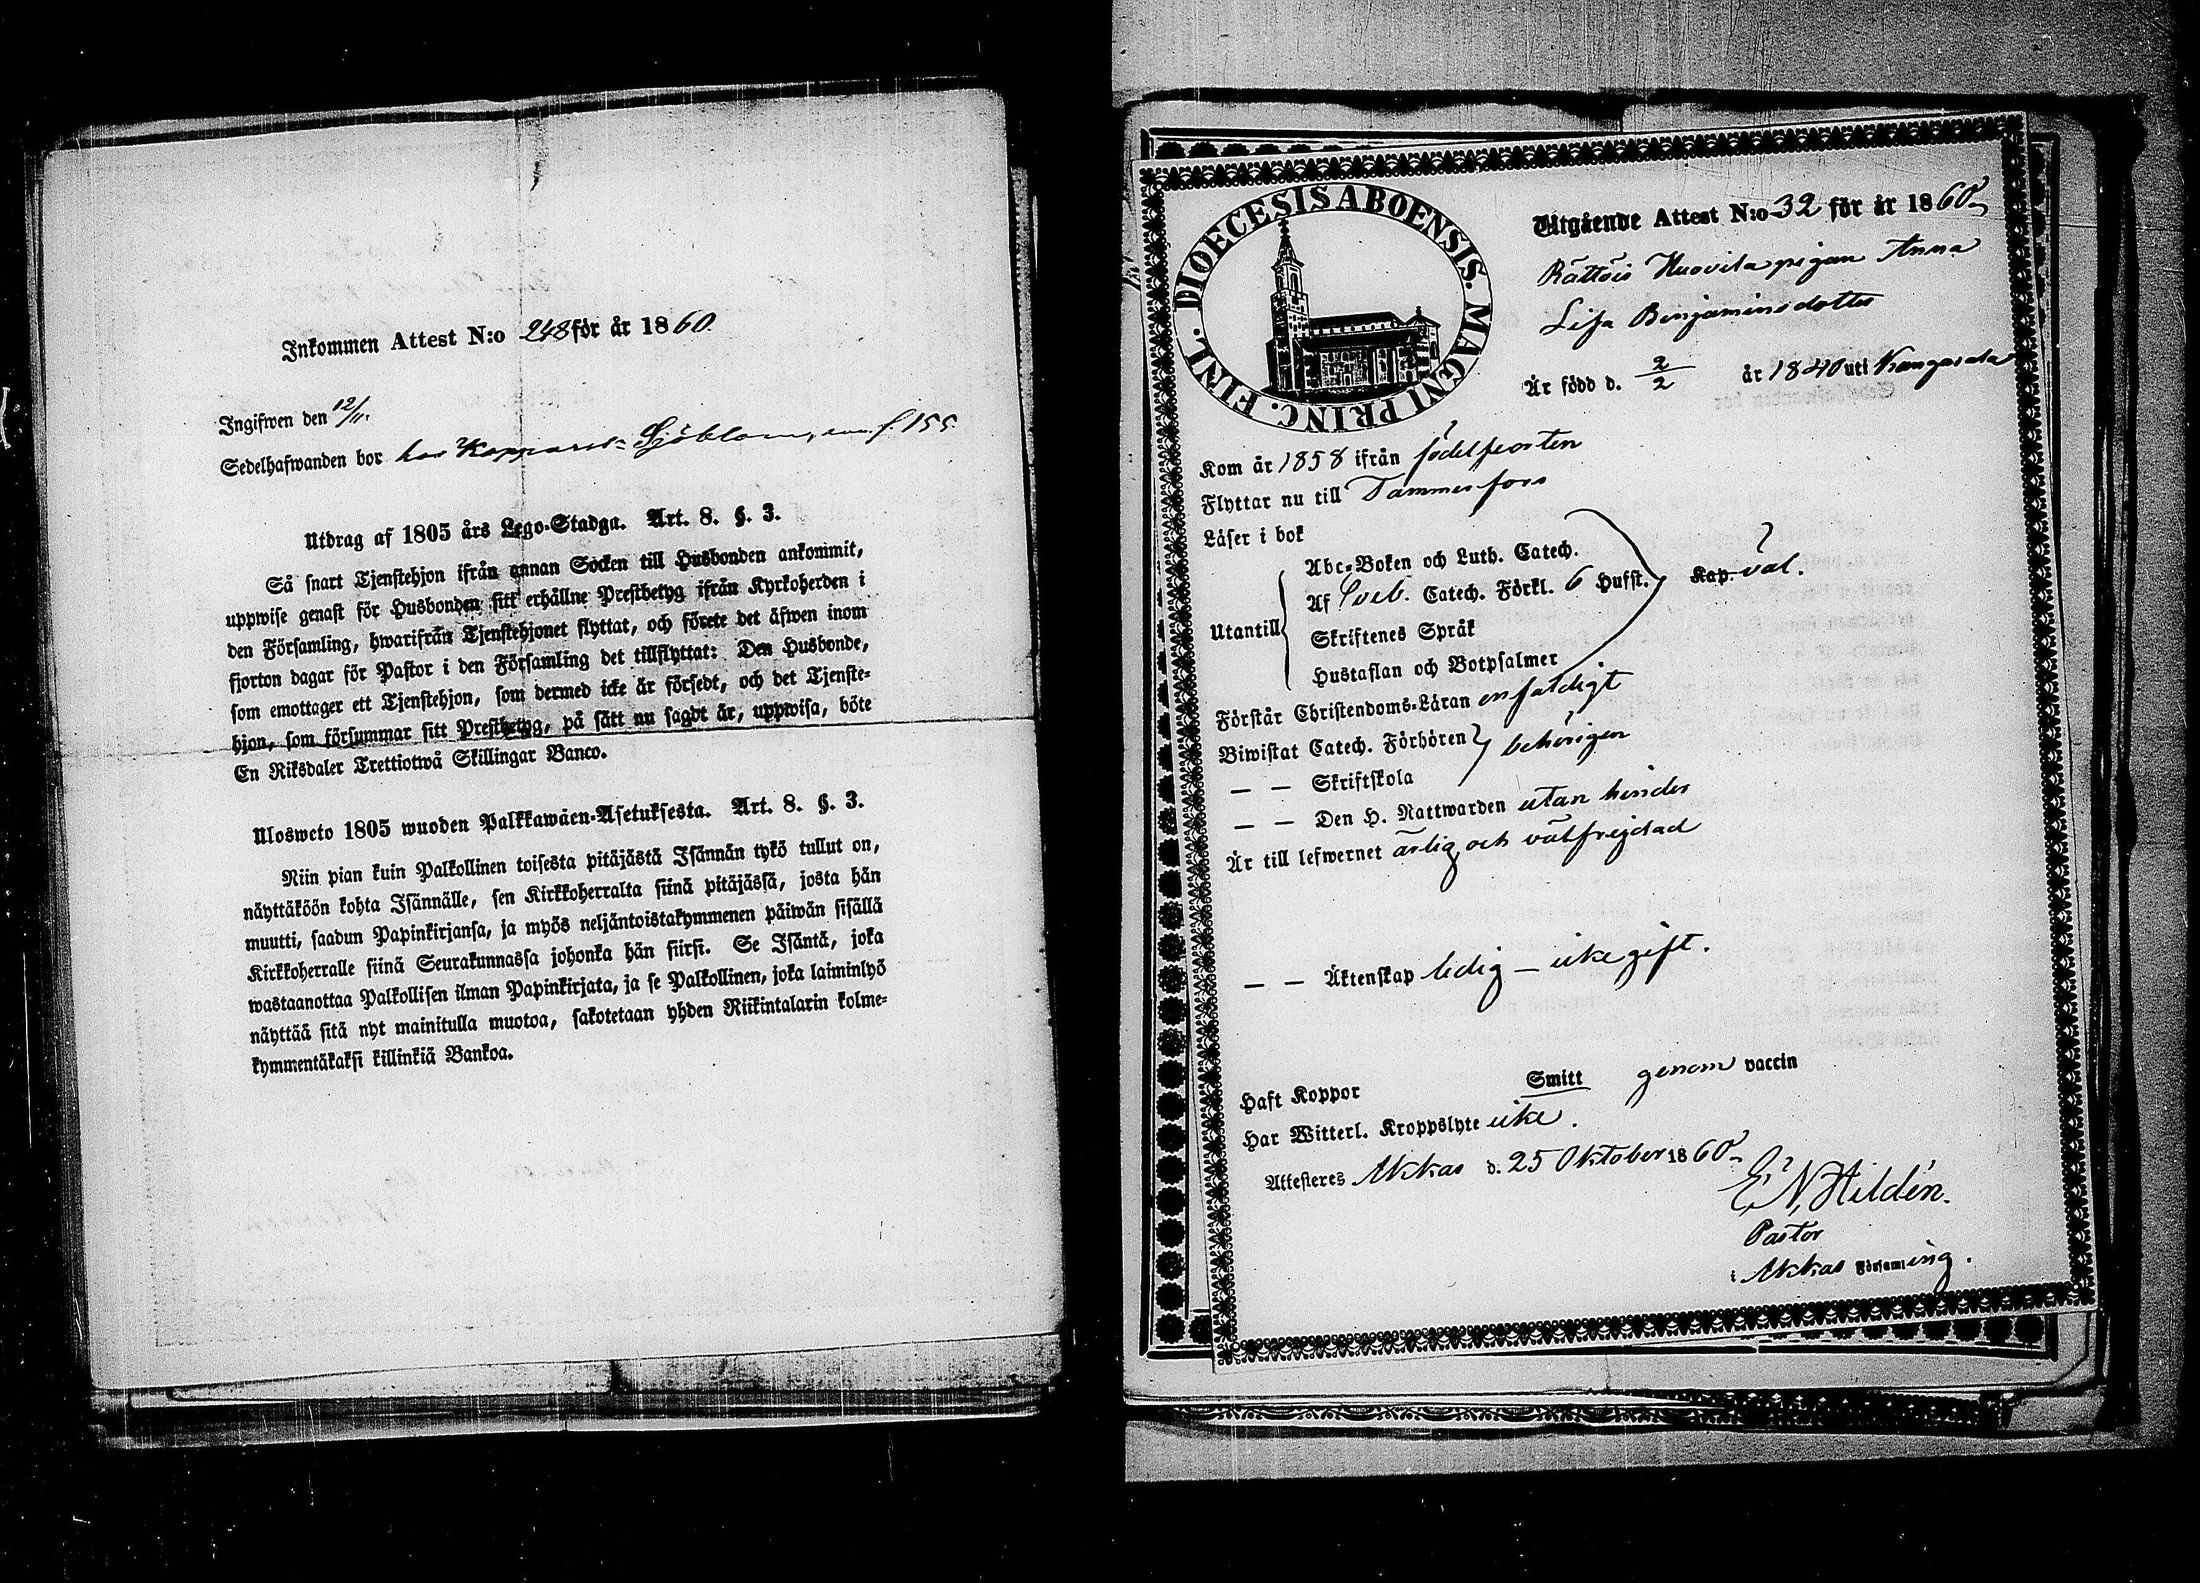 Inkommen Attest N:o 248 för år 1860
Ingifwen den 12/11.
Sedelhafwanden bor hos Kopparsl. Sjöblom, f. 155
Utdrag af 1805 års Lego-Stadga. Art. 8. §. 3.
Så snart Tjenstehjon ifrån annan Socken till Husbonden ankommit,
uppwise genast för Husbonden sitt erhållne Prestbetyg ifrån Kyrkoherden i
den Församling, hwarifrån Tjenstehjonet flyttat, och förete det äfwen inom
fjorton dagar för Pastor i den Församling det tillflyttat: Den Husbonde,
som emottager ett Tjenstehjon, som dermed icke är försedt, och det Tjenste-
hjon, som försummar sitt Prestbetyg, på sätt nu sagdt är, uppwisa, böte
En Riksdaler Trettiotwå Skillingar Banco.
Uloswето 1805 wuoden Palkkawäen-Asetuksesta. Art. 8. §. 3.
Niin pian kuin Palkollinen toisesta pitäjästä Isännän tykö tullut on,
näyttäköön kohta Isännälle, sen Kirkkoherralta siinä pitäjässä, josta hän
muutti, saadun Papinkirjansa, ja myös neljäntoistakymmenen päiwän sisällä
Kirkkoherralle siinä Seurakunnassa johonka hän siirsi. Se Isäntä, joka
wastaanottaa Palkollisen ilman Papinkirjata, ja se Palkollinen, joka laiminlyö
näyttää sitä nyt mainitulla muotoa, sakotetaan yhden Riikintalarin kolme-
kymmentäkaksi killinkiä Bankoa.
DIOECESIS ABOENSIS. MAGNI PRINC. FINL.
Utgående Attest N:o 32 för år 1860
Rättöis Huovila pigan Anna
Lisa Benjaminsdotter
Är född d. 2/2 år 1840 uti Kangasala
Kom år 1858 ifrån födelseorten
Flyttar nu till Tammerfors
Läser i bok
Abc-Boken och Luth. Catech.
Utantill Af Sveb. Catech. Förkl. 6 Hufst. Kap. väl.
Skriftenes Språk
Hustaflan och Botpsalmer
Förstår Christendoms-Läran enfaldigt
Biwistat Catech. Förhören behörigen
— — Skriftskola
— — Den H. Nattwarden utan hinder
Är till lefwernet ärlig och välfrejdad
— — Äktenskap ledig – icke gift.
Haft Koppor Smitt genom vaccin
Har Witterl. Kroppslyte icke.
Attesteres Akkas d. 25 Oktober 1860
E N Hildén.
Pastor
i Akkas Församling.